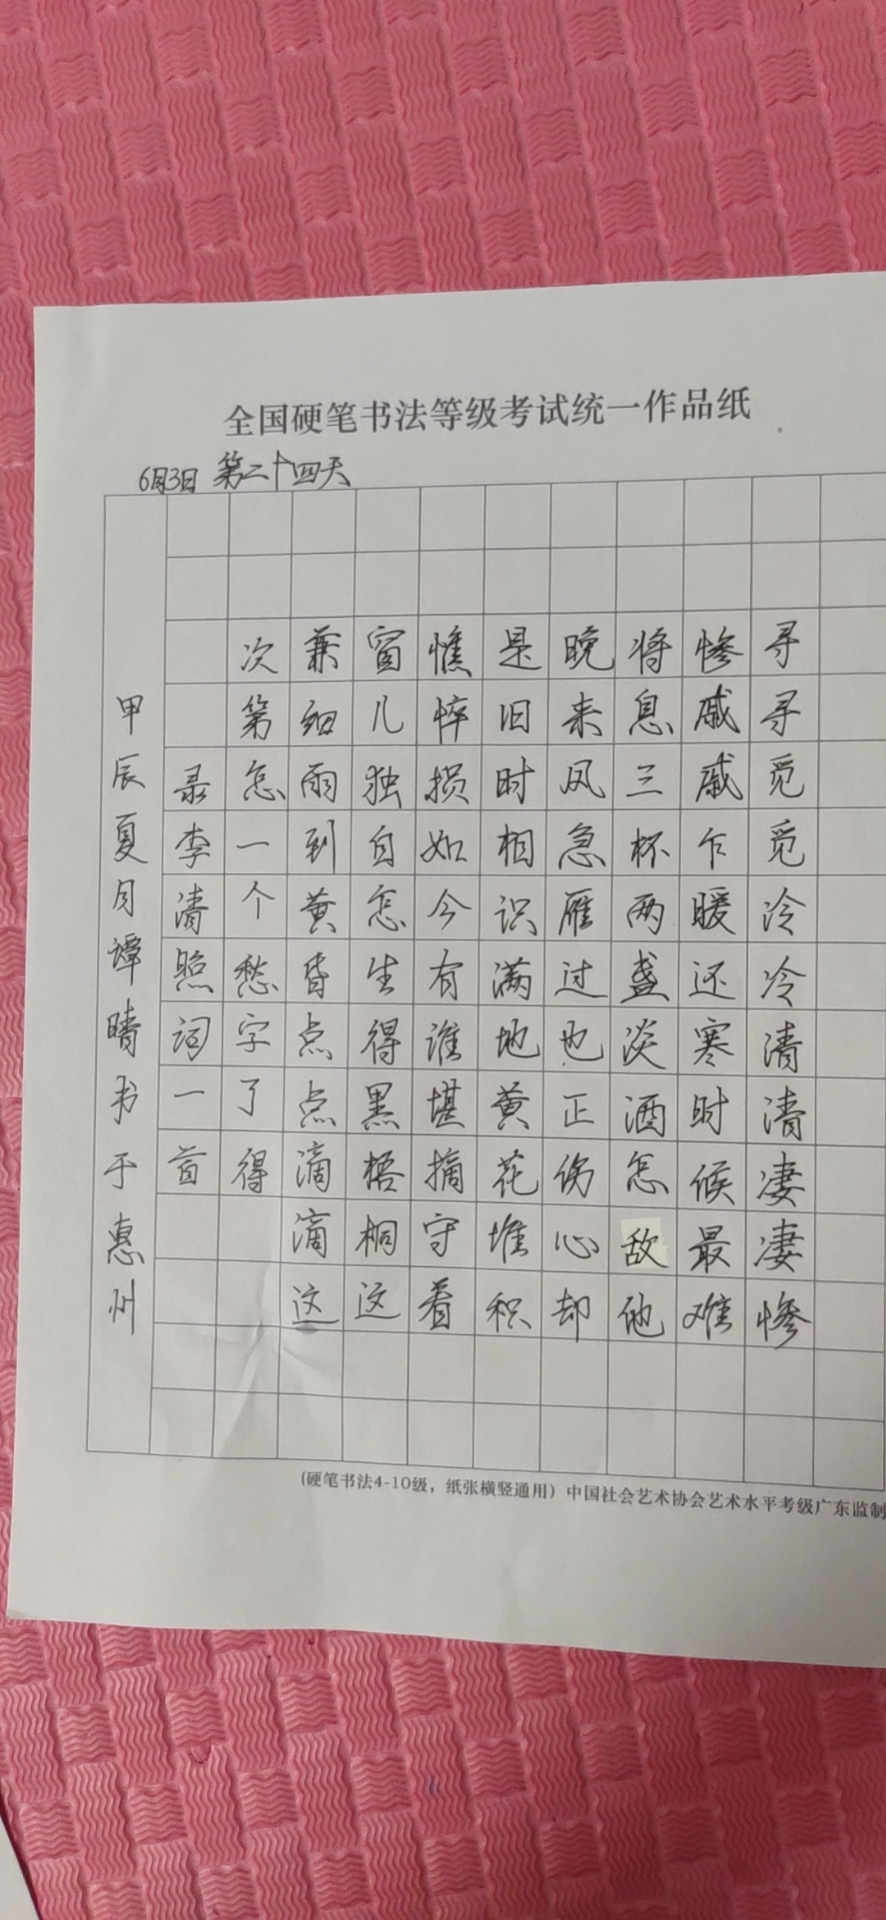 全国硬笔书法等级考试统一作品纸
6月3日 第二十四天
寻寻觅觅冷冷清清凄凄惨
惨戚戚乍暖还寒时候最难
将息三杯两盏淡酒怎敌他
晚来风急雁过也正伤心却
是旧时相识满地黄花堆积
憔悴损如今有谁堪摘守着
窗儿独自怎生得黑梧桐这
兼细雨到黄昏点点滴滴这
次第怎一个愁字了得
录李清照词一首
甲辰夏月谭晴书于惠州
(硬笔书法4-10级，纸张横竖通用）中国社会艺术协会艺术水平考级广东监制